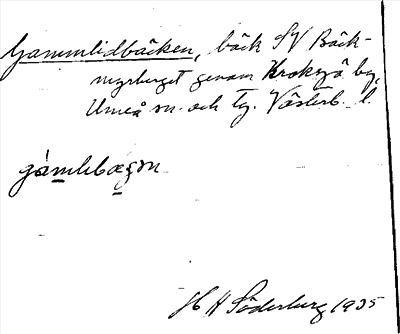 Gammlidbäcken, bäck SV Bäck-
myrberget genom Kroksjö by,
Umeå sn. och tg. Västerb. l.
gàmlibæçɔn
H H Söderberg 1935